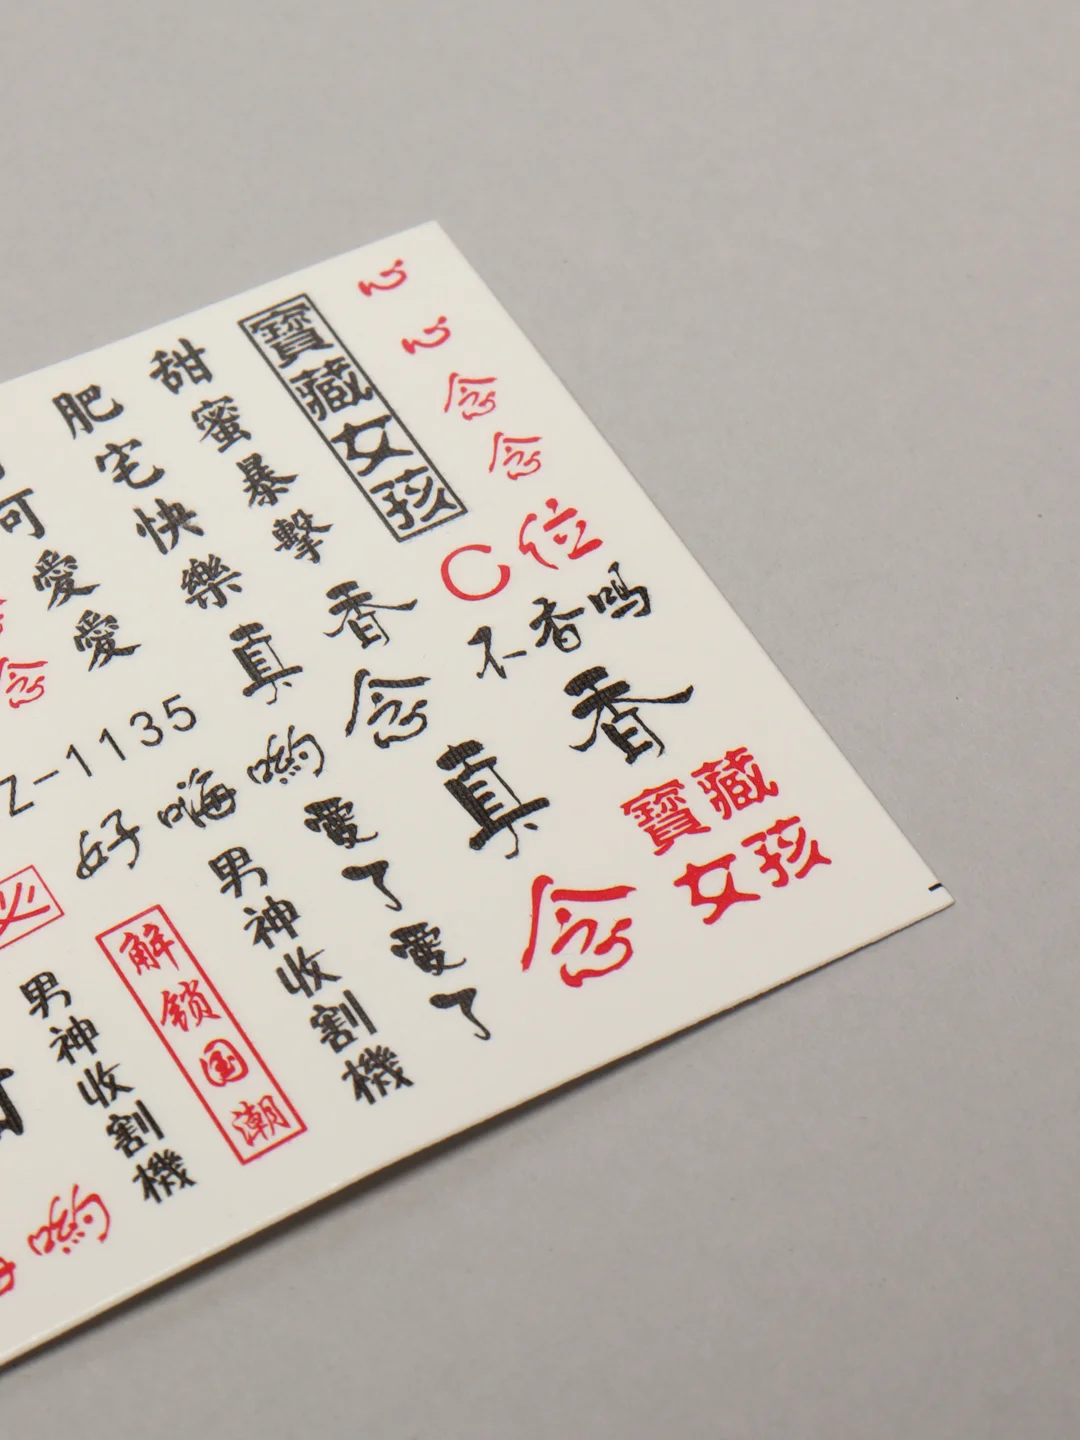 心
心
念
念
C位
不香吗
香
真
寶藏
女孩
念
寶藏女孩
甜蜜暴擊
香
真
念
肥宅快樂
可愛愛
念
Z-1135
好嗨哟
愛了愛了
男神收割機
解锁国潮
男神收割機
必
哟